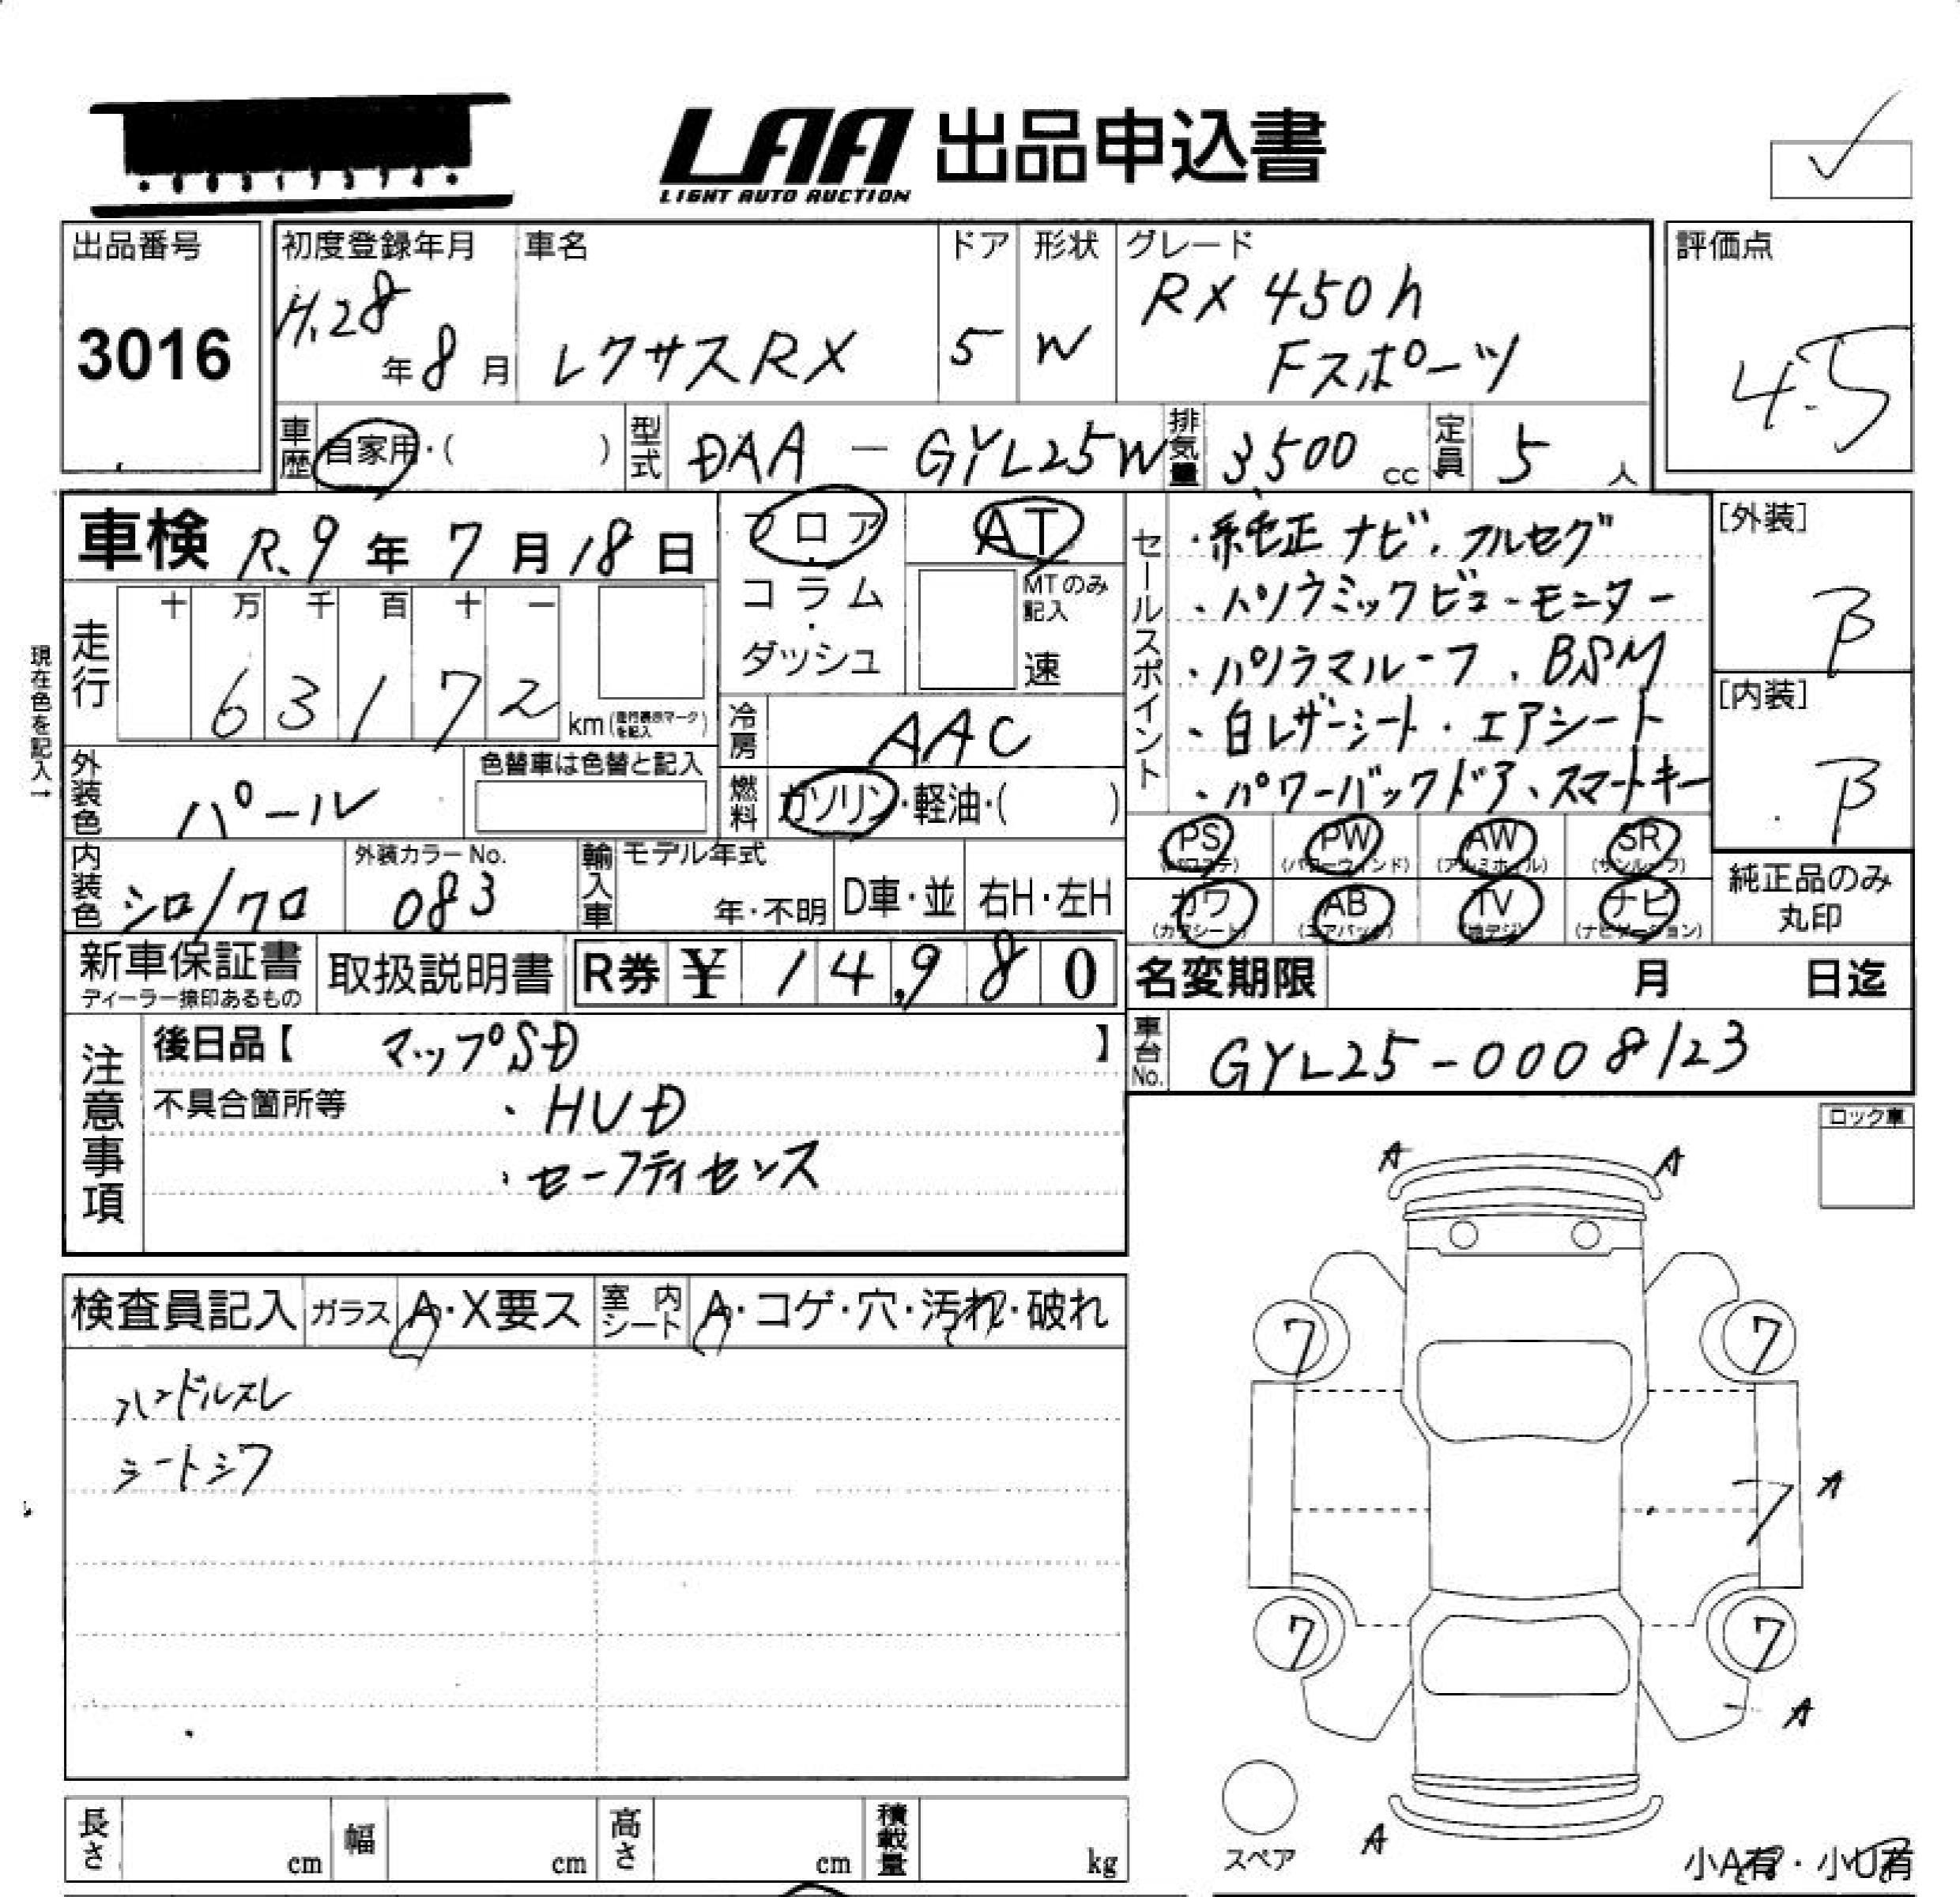 LAA 出品申込書
LIGHT AUTO AUCTION
出品番号
3016
初度登録年月
H.28年8月
車名
レクサスRX
ドア
5
形状
W
グレード
RX 450h
Fスポーツ
評価点
4.5
車歴 自家用・( )
型式 DAA-GYL25W
排気量 3,500 cc
定員 5 人
車検 R.9年7月18日
現在色を記入→
走行
十 万 千 百 十 一
6 3 1 7 2
km (走行表示マークを記入)
外装色 パール
色替車は色替と記入
内装色 シロ/クロ
外装カラーNo.
083
フロア・コラム・ダッシュ
AT
MTのみ記入
速
冷房 AAC
燃料 ガソリン・軽油・( )
輸入車 モデル年式
年・不明
D車・並
右H・左H
セールスポイント
・純正ナビ、フルセグ
・パノラミックビューモニター
・パノラマルーフ、BSM
・白レザーシート・エアシート
・パワーバックドア、スマートキー
[外装]
B
[内装]
B
PS (パワステ)
PW (パワーウィンド)
AW (アルミホイル)
SR (サンルーフ)
カワ (カワシート)
AB (エアバッグ)
TV (地デジ)
ナビ (ナビゲーション)
純正品のみ
丸印
新車保証書
ディーラー捺印あるもの
取扱説明書
R券 ¥ 14,980
名変期限 月 日迄
車台No. GYL25-0008123
注意事項
後日品【 マップSD 】
不具合箇所等 ・HUD
・セーフティセンス
ロック車
検査員記入
ガラス A・X要ス
室内シート A・コゲ・穴・汚れ・破れ
ハンドルスレ
シートシワ
A A
7 7
A
7
7 7
A
A
スペア
小A有・小U有
長さ cm
幅 cm
高さ cm
積載量 kg